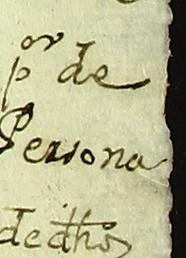 por de
Persona
de dhos